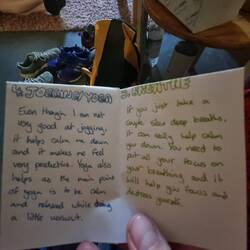 4. JOGGING/YOGA
Even though I am not
very good at jogging,
it helps calm me
down and it makes me feel
very productive. Yoga also
helps as the main point
of yoga is to be calm
and relaxed while doing
a little workout.
5. BREATHE
If you just take a
couple slow deep breaths,
it can really help calm
you down. You need to
put all your focus on
your breathing and it
will help you focus and
destress yourself.